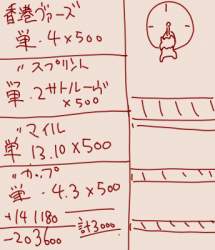 香港ヴァーズ
単・4×500
〃スプリント
単・2サトルーヴ
×500
〃マイル
単 13.10×500
〃カップ
単・4.3×500
+141180
計3000
-203600